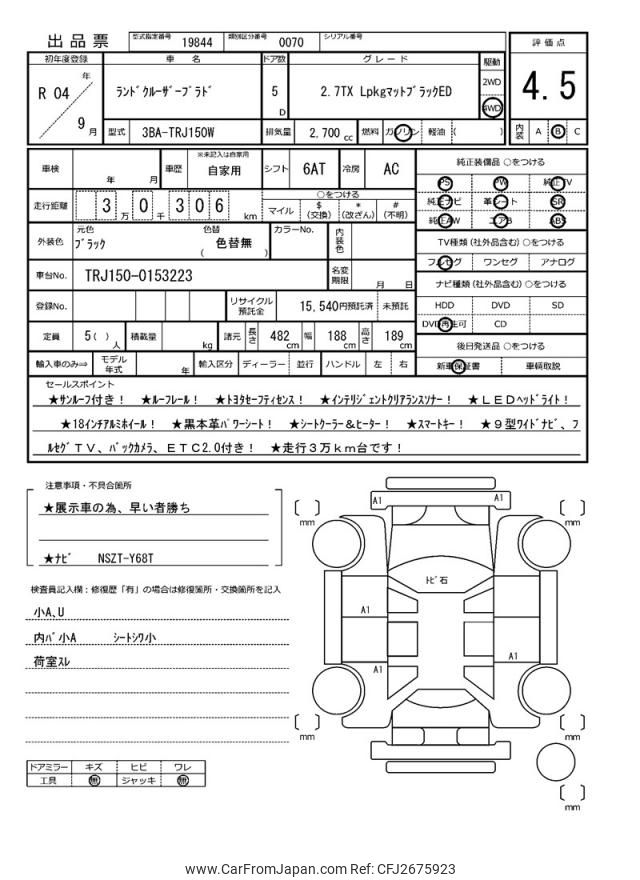 出品票 型式指定番号 19844 類別区分番号 0070 シリアル番号
評価点
4.5
内装 A B C
初年度登録 車名 ドア数 グレード 駆動
R 04 年 9 月
ﾗﾝﾄﾞｸﾙｰｻﾞｰﾌﾟﾗﾄﾞ 5 D 2.7TX LpkgﾏｯﾄﾌﾞﾗｯｸED 2WD
4WD
型式 3BA-TRJ150W 排気量 2,700 cc 燃料 ガソリン 軽油 ( )
車検 年 月 車歴 ※未記入は自家用 自家用 シフト 6AT 冷房 AC
走行距離 3 万 0 千 3 0 6 km
○をつける
マイル $ (交換) * (改ざん) # (不明)
外装色 元色 ﾌﾞﾗｯｸ 色替 ( 色替無 ) カラーNo. 内装色
車台No. TRJ150-0153223 名変期限 月 日
登録No. リサイクル預託金 15,540円預託済 未預託
定員 5( ) 人 積載量 kg 諸元 長さ 482 cm 幅 188 cm 高さ 189 cm
輸入車のみ⇒ モデル年式 年 輸入区分 ディーラー 並行 ハンドル 左 右
純正装備品 ○をつける
PS PW 純正TV
純正ナビ 革シート SR
純正AW エアB ABS
TV種類 (社外品含む) ○をつける
フルセグ ワンセグ アナログ
ナビ種類 (社外品含む) ○をつける
HDD DVD SD
DVD再生可 CD
後日発送品 ○をつける
新車保証書 車輌取説
セールスポイント
★ｻﾝﾙｰﾌ付き！ ★ﾙｰﾌﾚｰﾙ！ ★ﾄﾖﾀｾｰﾌﾃｨｾﾝｽ！ ★ｲﾝﾃﾘｼﾞｪﾝﾄｸﾘｱﾗﾝｽｿﾅｰ！ ★ＬＥＤﾍｯﾄﾞﾗｲﾄ！
★18ｲﾝﾁｱﾙﾐﾎｲｰﾙ！ ★黒本革ﾊﾟﾜｰｼｰﾄ！ ★ｼｰﾄｸｰﾗｰ&ﾋｰﾀｰ！ ★ｽﾏｰﾄｷｰ！ ★９型ﾜｲﾄﾞﾅﾋﾞ、フ
ﾙｾｸﾞＴＶ、ﾊﾞｯｸｶﾒﾗ、ＥＴＣ2.0付き！ ★走行３万ｋｍ台です！
注意事項・不具合箇所
★展示車の為、早い者勝ち
★ﾅﾋﾞ NSZT-Y68T
検査員記入欄：修復歴「有」の場合は修復箇所・交換箇所を記入
小A、U
内ﾊﾞ小A ｼｰﾄｼﾜ小
荷室ｽﾚ
ドアミラー キズ ヒビ ワレ
工具 無 ジャッキ 無
A1 A1
ﾄﾋﾞ石
A1
A1
A1
mm
mm
mm
mm
mm
www.CarFromJapan.com Ref: CFJ2675923